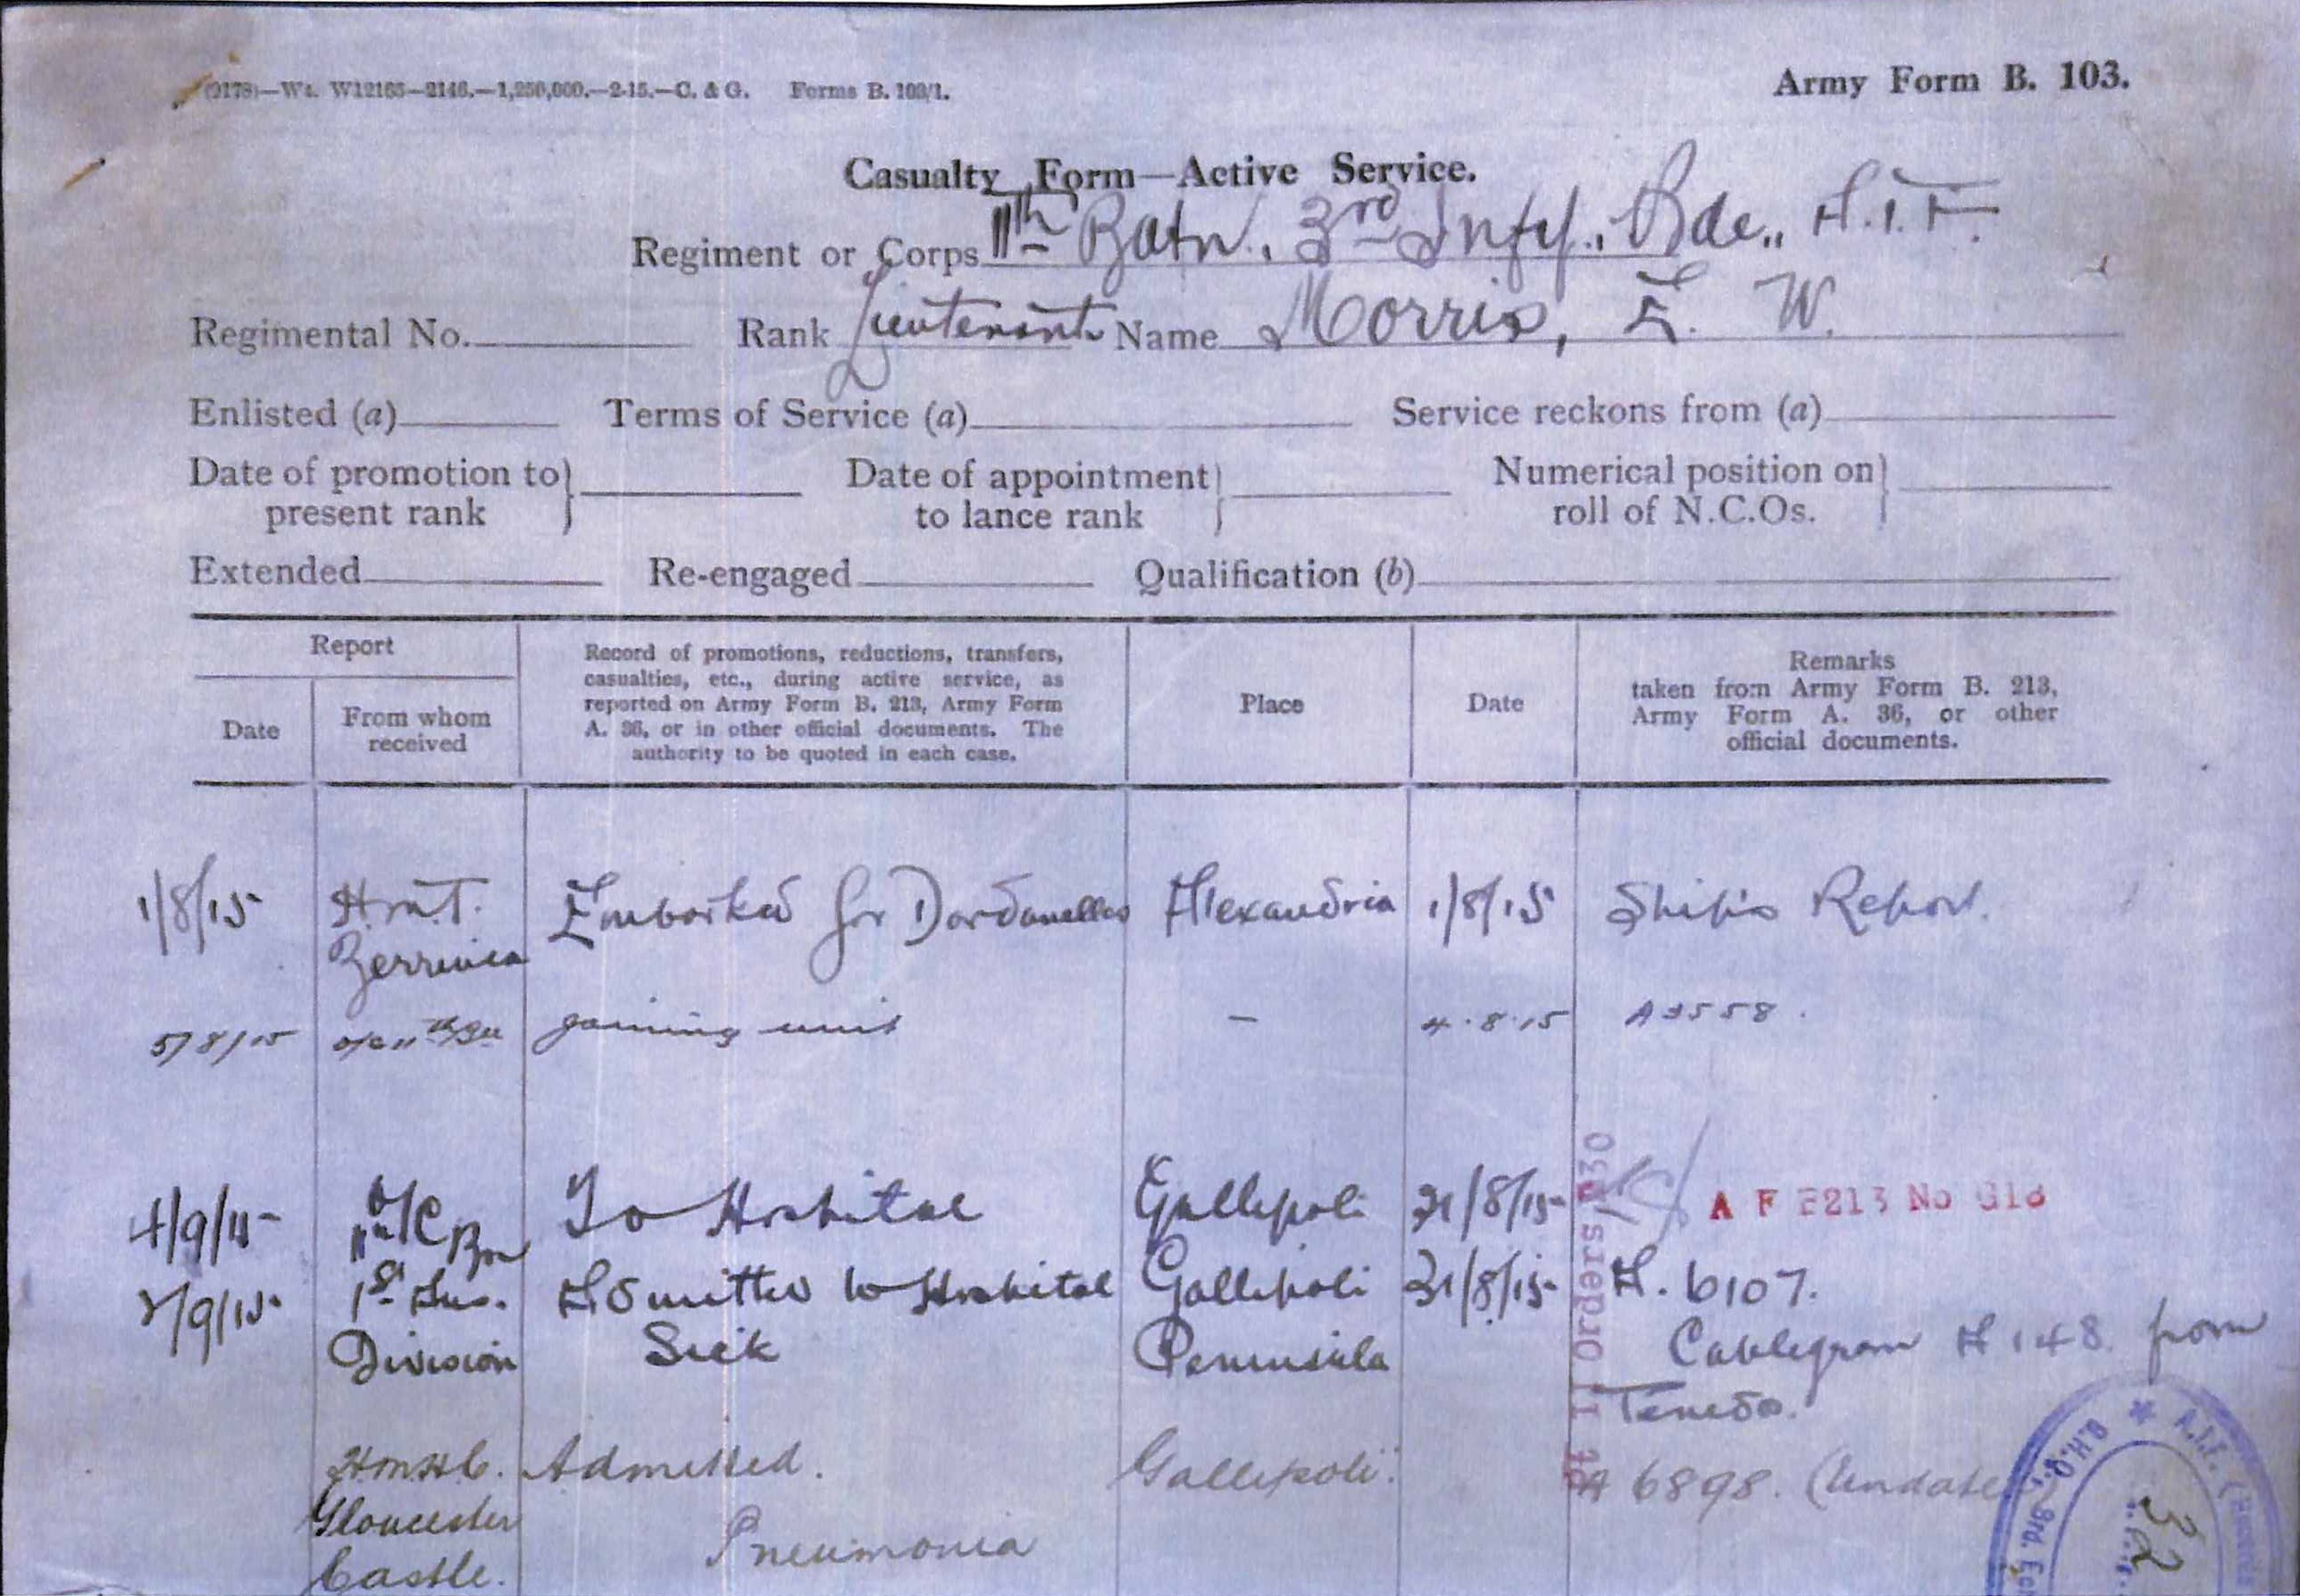 (9178)—Wt. W12165—2146.—1,250,000.—2-15.—C. & G. Forms B. 103/1.
Army Form B. 103.
Casualty Form—Active Service.
Regiment or Corps 11th Batn. 3rd Infy. Bde., A.I.F.
Regimental No. Rank Lieutenant Name Morris, E. W.
Enlisted (a) Terms of Service (a) Service reckons from (a)
Date of promotion to present rank Date of appointment to lance rank Numerical position on roll of N.C.Os.
Extended Re-engaged Qualification (b)
Report
Date
From whom received
Record of promotions, reductions, transfers,
casualties, etc., during active service, as
reported on Army Form B. 213, Army Form
A. 36, or in other official documents. The
authority to be quoted in each case.
Place
Date
Remarks
taken from Army Form B. 213,
Army Form A. 36, or other
official documents.
1/8/15 H.M.T. Embarked for Dardanelles Alexandria 1/8/15 Ship's Report.
5/8/15 o/c 11th Bn Joining unit — 4.8.15 A3558.
4/9/15 O/C 11th Bn To Hospital Gallipoli 31/8/15 A F B213 No G18
1st Aus. Admitted to Hospital Gallipoli 31/8/15 A. 6107.
Division Sick Peninsula Cablegram A 148. from
Tenedos.
Admitted. Gallipoli. A 6898.
Gloucester
Castle. Pneumonia
Orders
A.I.F.
G.H.Q.
3rd.
32